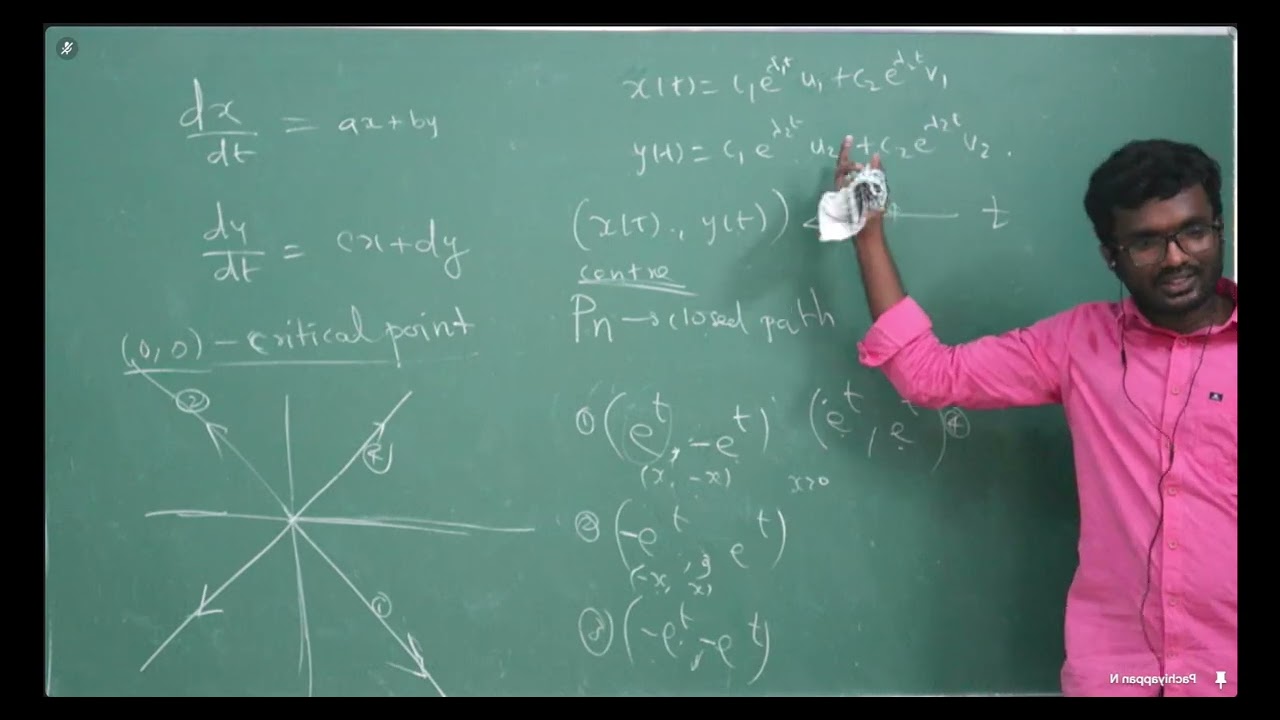 dx/dt = ax+by
dy/dt = cx+dy
(0,0) - critical point
②
④
①
x(t) = c₁e^{λ₁t} u₁ + c₂e^{λ₂t} v₁
y(t) = c₁e^{λ₂t} u₂ + c₂e^{λ₂t} v₂.
(x(t)., y(t)) t
centre
Pn → closed path
① (e^t, -e^t) (e^t, e^t) ④
(x, -x) x>0
② (-e^t, e^t)
(-x, x)
③ (-e^t, -e^t)
Pachiyappan N